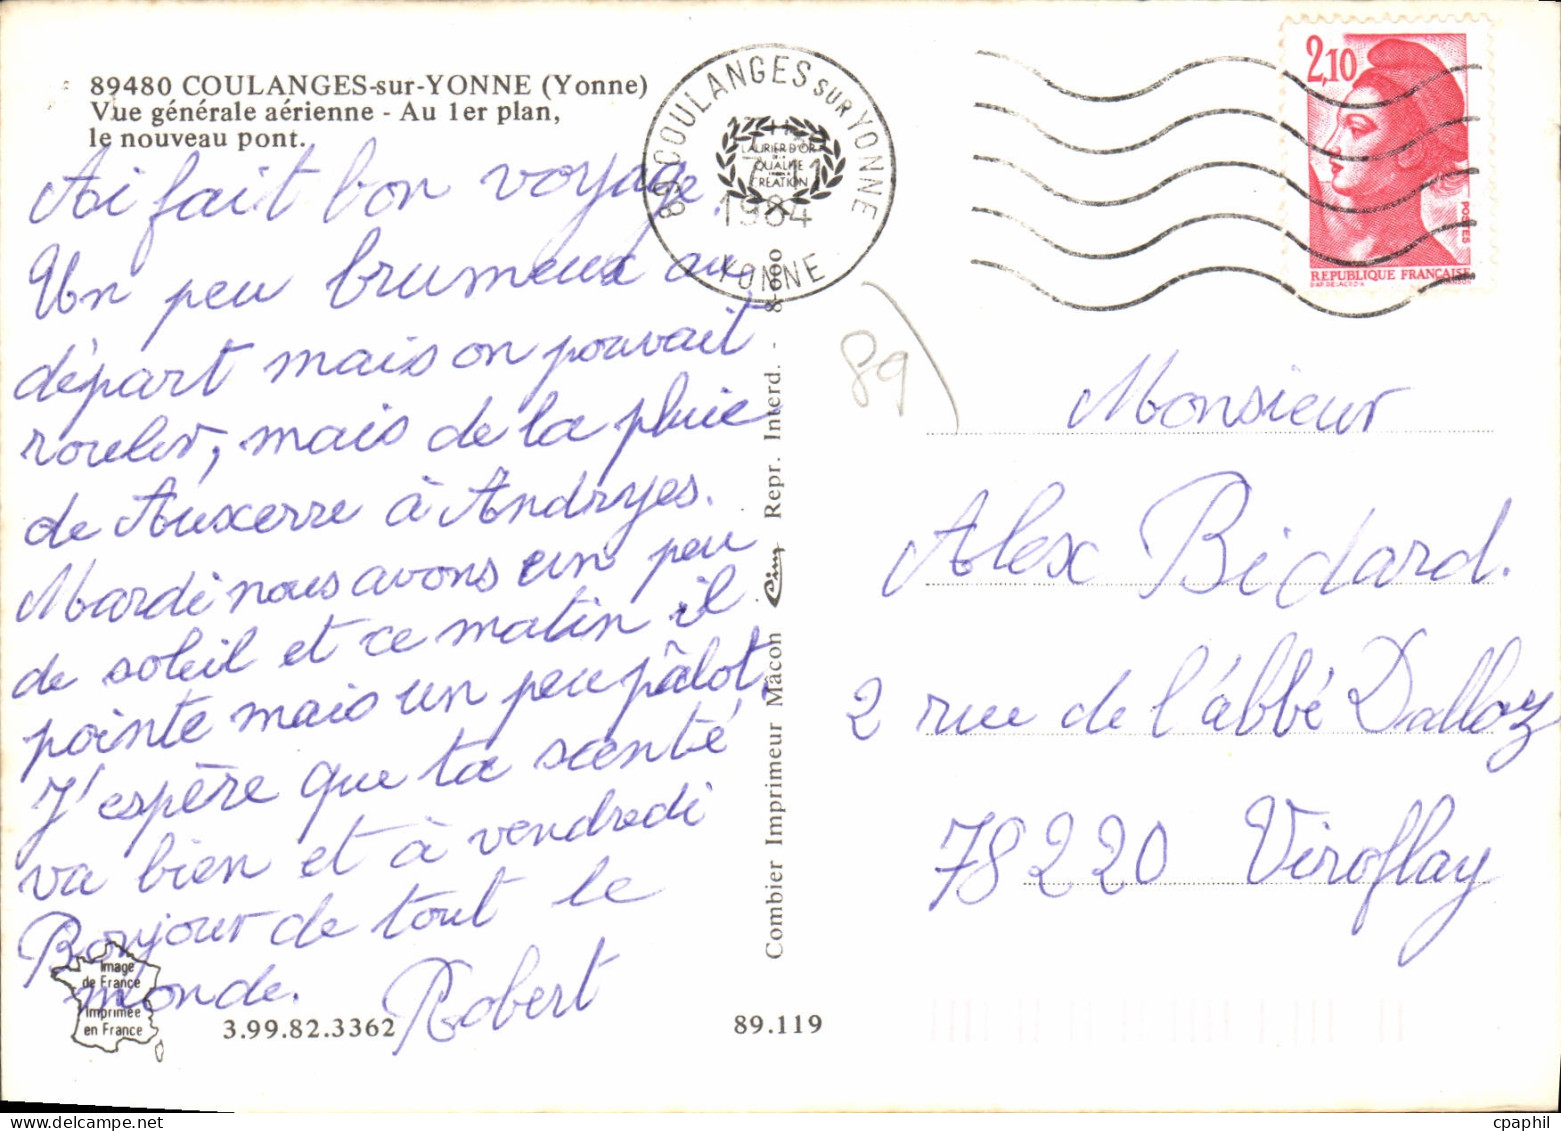 89480 COULANGES-sur-YONNE (Yonne)
Vue générale aérienne - Au 1er plan,
le nouveau pont.
Ai fait bon voyage.
Un peu brumeux au
départ mais on pouvait
rouler, mais de la pluie
de Auxerre à Andryes.
Mardi nous avons un peu
de soleil et ce matin il
pointe mais un peu pâlot,
J'espère que ta santé
va bien et à vendredi
Bonjour de tout le
monde. Robert
Image
de France
Imprimée
en France
3.99.82.3362
89.119
Combier Imprimeur Mâcon Cim Repr. Interd. - 8-000
89 COULANGES SUR YONNE
LAURIER D'OR
QUALITE
CREATION
1984
YONNE
2,10
POSTES
REPUBLIQUE FRANÇAISE
89
Monsieur
Alex Bidard.
2 rue de l'abbé Dalloz
78220 Viroflay
cpaphil